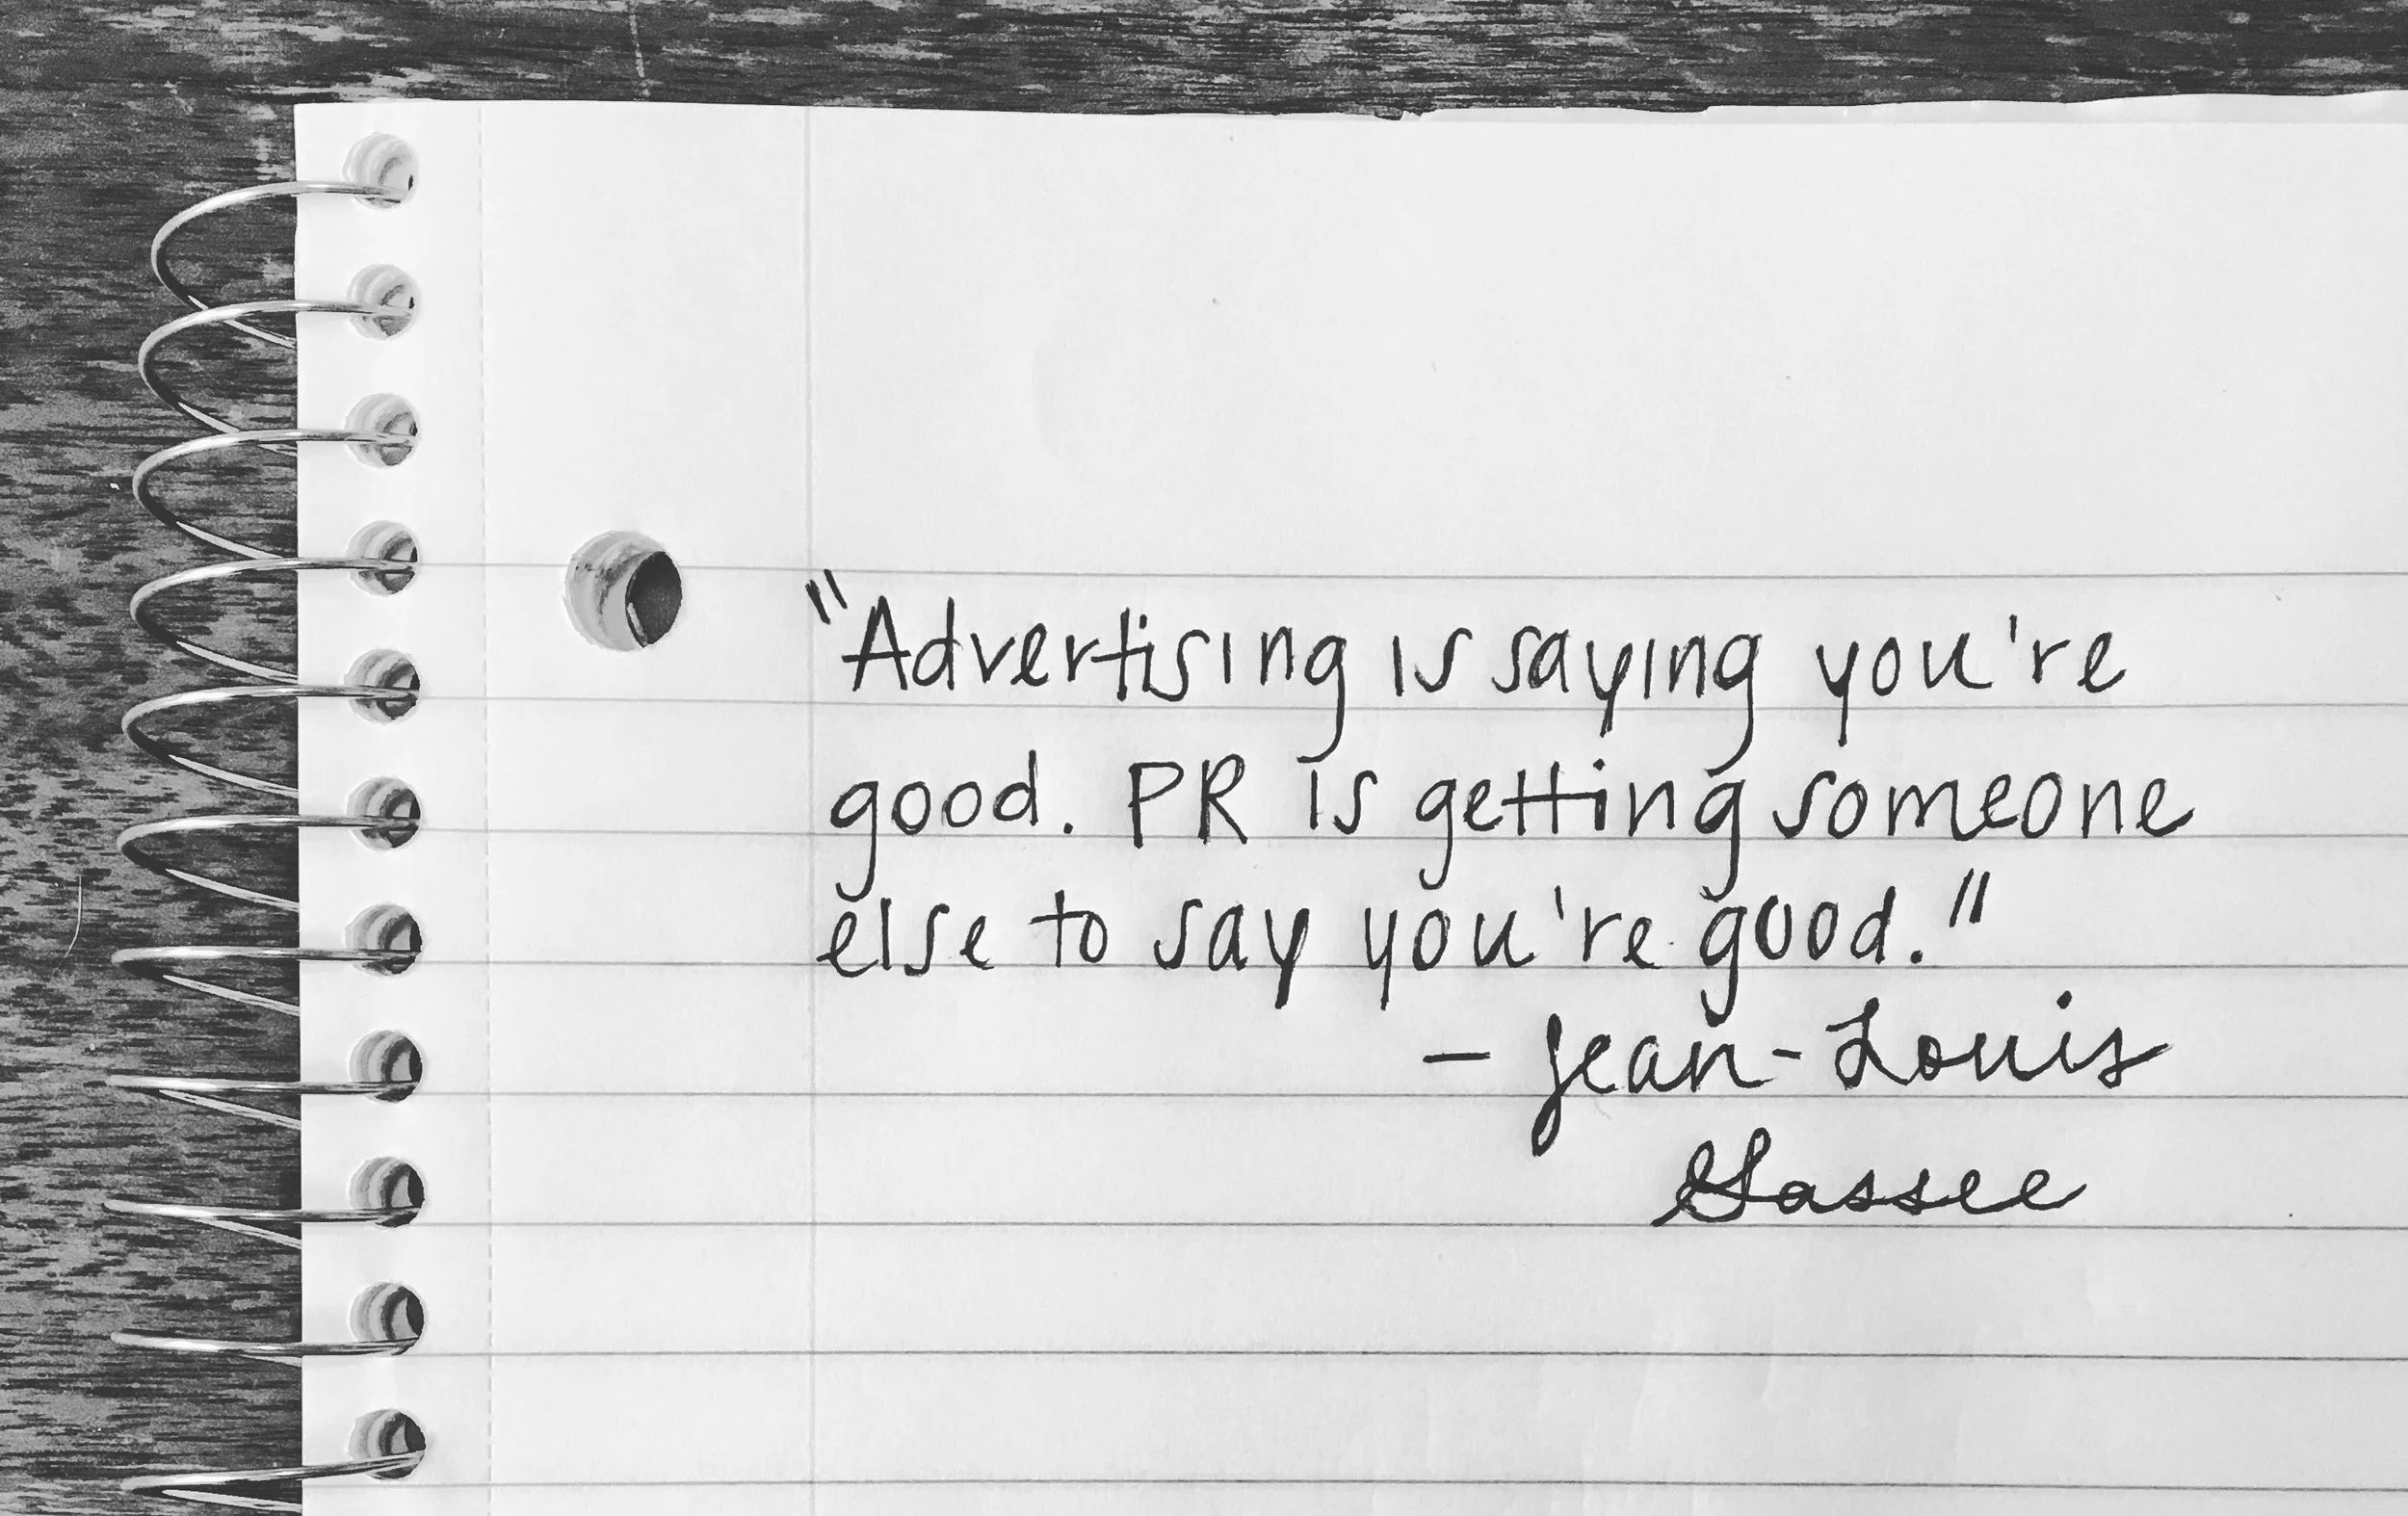 "Advertising is saying you're
good. PR is getting someone
else to say you're good."
- Jean-Louis
Gassee